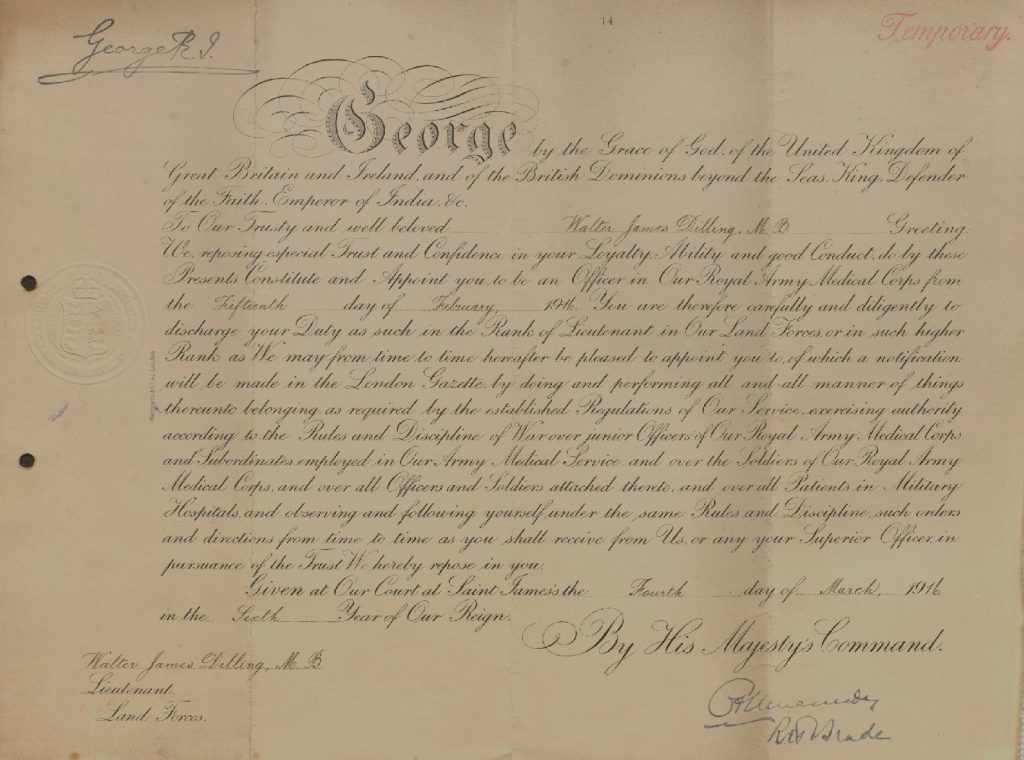 14
Temporary.
George R.I.
George by the Grace of God, of the United Kingdom of
Great Britain and Ireland, and of the British Dominions beyond the Seas, King, Defender
of the Faith, Emperor of India, &c.
To Our Trusty and well beloved Walter James Dilling, M.B. Greeting:
We, reposing especial Trust and Confidence in your Loyalty, Ability and good Conduct, do by these
Presents Constitute and Appoint you to be an Officer in Our Royal Army Medical Corps, from
the Fifteenth day of February, 1916. You are therefore carefully and diligently to
discharge your Duty as such in the Rank of Lieutenant in Our Land Forces, or in such higher
Rank as We may from time to time hereafter be pleased to appoint you to, of which a notification
will be made in the London Gazette, by doing and performing all and all manner of things
thereunto belonging as required by the established Regulations of Our Service, exercising authority
according to the Rules and Discipline of War over junior Officers of Our Royal Army Medical Corps
and Subordinates employed in Our Army Medical Service and over the Soldiers of Our Royal Army
Medical Corps, and over all Officers and Soldiers attached thereto, and over all Patients in Military
Hospitals, and observing and following yourself, under the same Rules and Discipline, such orders
and directions from time to time as you shall receive from Us, or any your Superior Officer, in
pursuance of the Trust We hereby repose in you.
Given at Our Court at Saint James's the Fourth day of March, 1916
in the Sixth Year of Our Reign.
By His Majesty's Command.
Walter James Dilling, M.B
Lieutenant,
Land Forces.
R H Brade